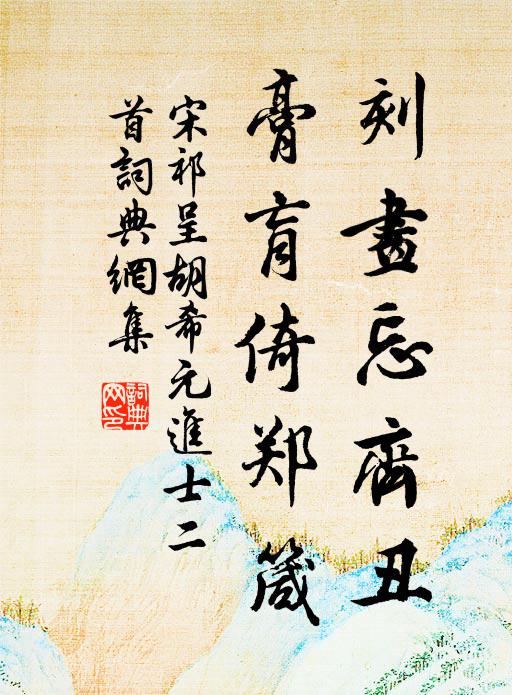 刻畫忘齊丑
膏肓倚郑箴
宋祁呈胡希元進士二
首詞典網集
詞典网印